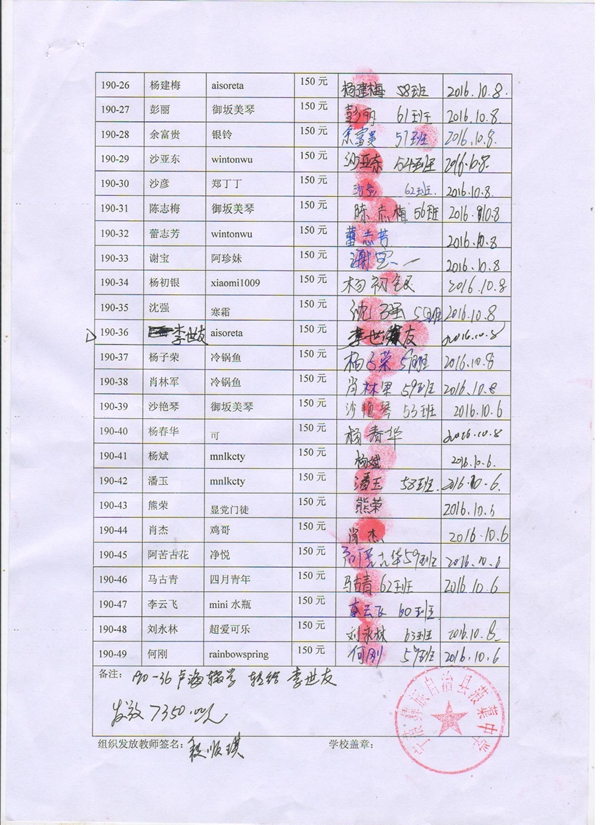 190-26 杨建梅 aisoreta 150 元 杨建梅 58班 2016.10.8.
190-27 彭丽 御坂美琴 150 元 彭丽 61班 2016.10.8
190-28 余富贵 银铃 150 元 余富贵 57班 2016.10.8.
190-29 沙亚东 wintonwu 150 元 沙亚东 54班 2016.10.8.
190-30 沙彦 郑丁丁 150 元 沙彦 62班 2016.10.8
190-31 陈志梅 御坂美琴 150 元 陈志梅 56班 2016.10.8
190-32 蕾志芳 wintonwu 150 元 蕾志芳 2016.10.8
190-33 谢宝 阿珍妹 150 元 谢宝 2016.10.8
190-34 杨初银 xiaomi1009 150 元 杨初银 2016.10.8
190-35 沈强 寒霜 150 元 沈强 55班 2016.10.8
190-36 李世友 aisoreta 150 元 李世友 2016.10.8
190-37 杨子荣 冷锅鱼 150 元 杨子荣 2016.10.8
190-38 肖林军 冷锅鱼 150 元 肖林军 59班 2016.10.8
190-39 沙艳琴 御坂美琴 150 元 沙艳琴 53班 2016.10.6
190-40 杨春华 可 150 元 杨春华 2016.10.8
190-41 杨斌 mnlkcty 150 元 杨斌 2016.10.6.
190-42 潘玉 mnlkcty 150 元 潘玉 53班. 2016.10.6.
190-43 熊荣 显党门徒 150 元 熊荣 2016.10.
190-44 肖杰 鸡哥 150 元 肖杰 2016.10.6
190-45 阿苦古花 净悦 150 元 59班 2016.10.6
190-46 马古青 四月青年 150 元 马古青 62班 2016.10.6
190-47 李云飞 mini 水瓶 150 元 李云飞 60班
190-48 刘永林 超爱可乐 150 元 刘永林 63班 2016.10.8
190-49 何刚 rainbowspring 150 元 何刚 57班 2016.10.6
备注： 190-36 李世友
发放 7350.
组织发放教师签名： 学校盖章：
彝族自治县 中学